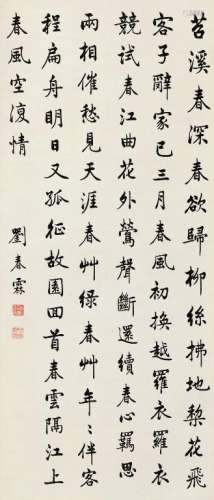 苕溪春深春欲歸柳絲拂地棃花飛
客子辭家已三月春風初換越羅衣羅衣
競試春江曲花外鶯聲斷還續春心羈思
兩相催愁見天涯春艸綠春艸年〻伴客
程扁舟明日又孤征故園回首春雲隔江上
春風空復情
劉春霖